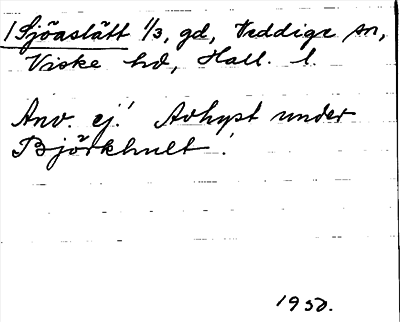 1 Sjöaslätt 1/3, gd, Veddige sn,
Viske hd, Hall. l.
Anv. ej! Avhyst under
Björkhult!
1950.